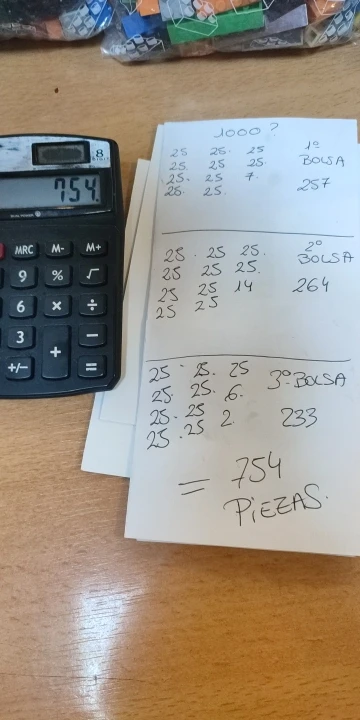 1000 ?
25 25. 25 1º
25. 25 25. BOLSA
25. 25 7.
25. 25. 257
25. 25 25. 2º
25 25 25. BOLSA
25 25 14 264
25 25
25 25. 25
25. 25. 6. 3º BOLSA
25. 25 2 233
25 .25
= 754
PIEZAS.
8
754.
MRC M- M+
9 % √
6 × ÷
3 + −
+/− =